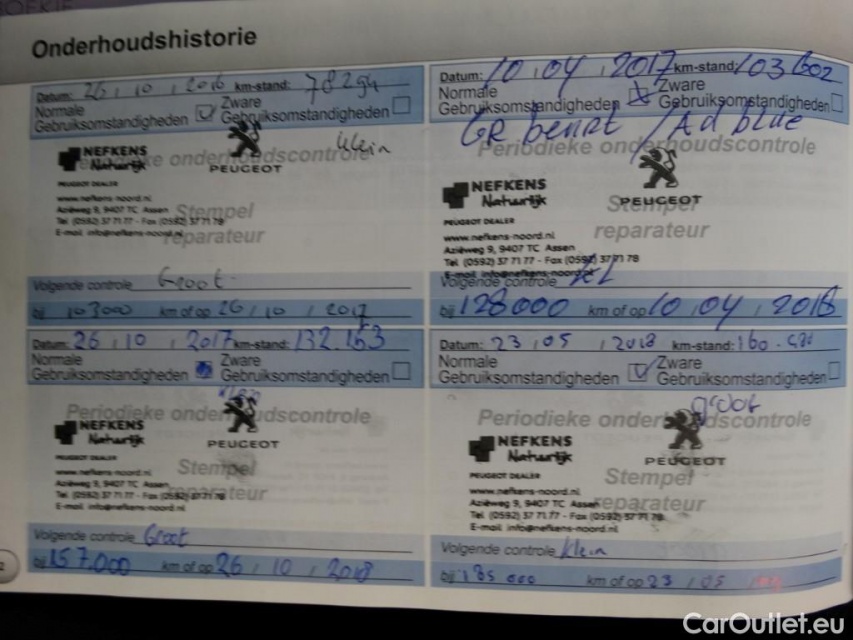 Onderhoudshistorie
Datum: 26 / 10 / 2016 km-stand: 78294
Normale Gebruiksomstandigheden Zware Gebruiksomstandigheden
klein
Periodieke onderhoudscontrole
NEFKENS
Natuurlijk
PEUGEOT
PEUGEOT DEALER
www.nefkens-noord.nl
Aziëweg 9, 9407 TC Assen
Tel. (0592) 37 71 77 - Fax (0592) 37 71 78
E-mail info@nefkens-noord.nl
Stempel
reparateur
Volgende controle Groot
bij 103000 km of op 26 / 10 / 2017
Datum: 10 / 04 / 2017 km-stand: 103602
Normale Gebruiksomstandigheden Zware Gebruiksomstandigheden
GR beurt / Ad blue
Periodieke onderhoudscontrole
NEFKENS
Natuurlijk
PEUGEOT
PEUGEOT DEALER
www.nefkens-noord.nl
Aziëweg 9, 9407 TC Assen
Tel. (0592) 37 71 77 - Fax (0592) 37 71 78
E-mail info@nefkens-noord.nl
Stempel
reparateur
Volgende controle KL
bij 128000 km of op 10 / 04 / 2018
Datum: 26 / 10 / 2017 km-stand: 132.163
Normale Gebruiksomstandigheden Zware Gebruiksomstandigheden
Periodieke onderhoudscontrole
NEFKENS
Natuurlijk
PEUGEOT
PEUGEOT DEALER
www.nefkens-noord.nl
Aziëweg 9, 9407 TC Assen
Tel. (0592) 37 71 77 - Fax (0592) 37 71 78
E-mail info@nefkens-noord.nl
Stempel
reparateur
Volgende controle Groot
bij 157.000 km of op 26 / 10 / 2018
Datum: 23 / 05 / 2018 km-stand:
Normale Gebruiksomstandigheden Zware Gebruiksomstandigheden
groot
Periodieke onderhoudscontrole
NEFKENS
Natuurlijk
PEUGEOT
PEUGEOT DEALER
www.nefkens-noord.nl
Aziëweg 9, 9407 TC Assen
Tel. (0592) 37 71 77 - Fax (0592) 37 71 78
E-mail info@nefkens-noord.nl
Stempel
reparateur
Volgende controle klein
bij 185 000 km of op 23 / 05 /
2
CarOutlet.eu